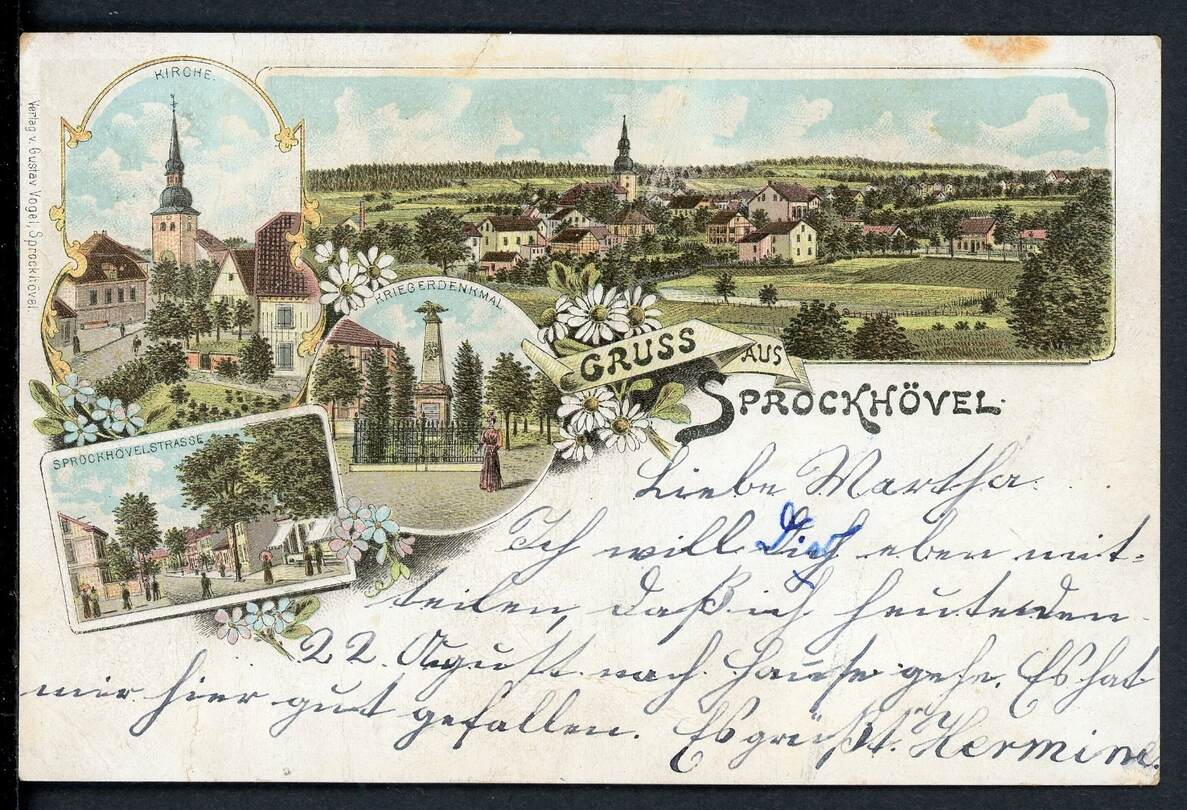 KIRCHE.
Verlag v. Gustav Vogel, Sprockhövel.
KRIEGERDENKMAL.
GRUSS AUS
SPROCKHÖVEL.
SPROCKHÖVELSTRASSE
Liebe Martha.
Ich will Dich eben mit-
teilen, daß ich heute den
22. August nach Hause gehe. Es hat
mir hier gut gefallen. Es grüßt. Hermine.